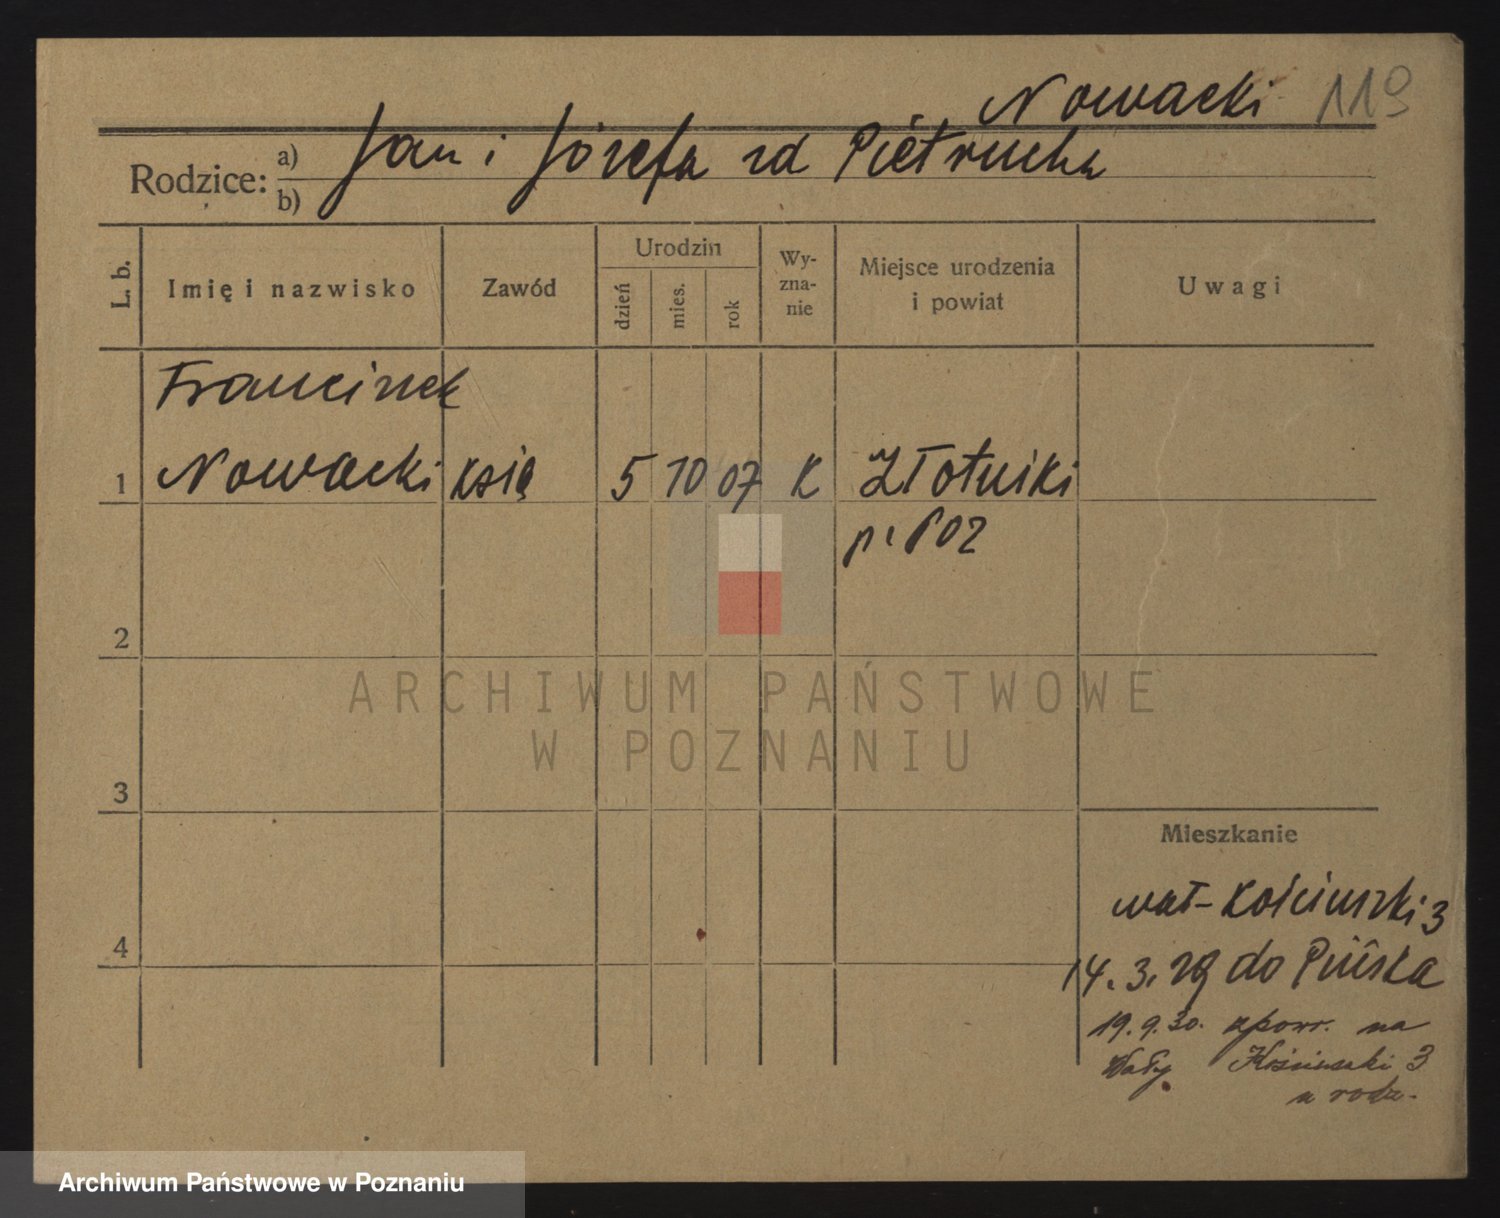 Nowacki 119
Rodzice: a) b) Jan i Józefa zd Pietrucha
L. b. Imię i nazwisko Zawód Urodzin dzień mies. rok Wyznanie Miejsce urodzenia i powiat Uwagi
Franciszek
1 Nowacki 5 10 07 K Złotniki
p. Poz
2
ARCHIWUM PAŃSTWOWE
W POZNANIU
3
Mieszkanie
wał-Kościuszki 3
4
14.3.29 do Pińska
19.9.30. zpowr. na
Wały Kościuszki 3
u rodz.
Archiwum Państwowe w Poznaniu